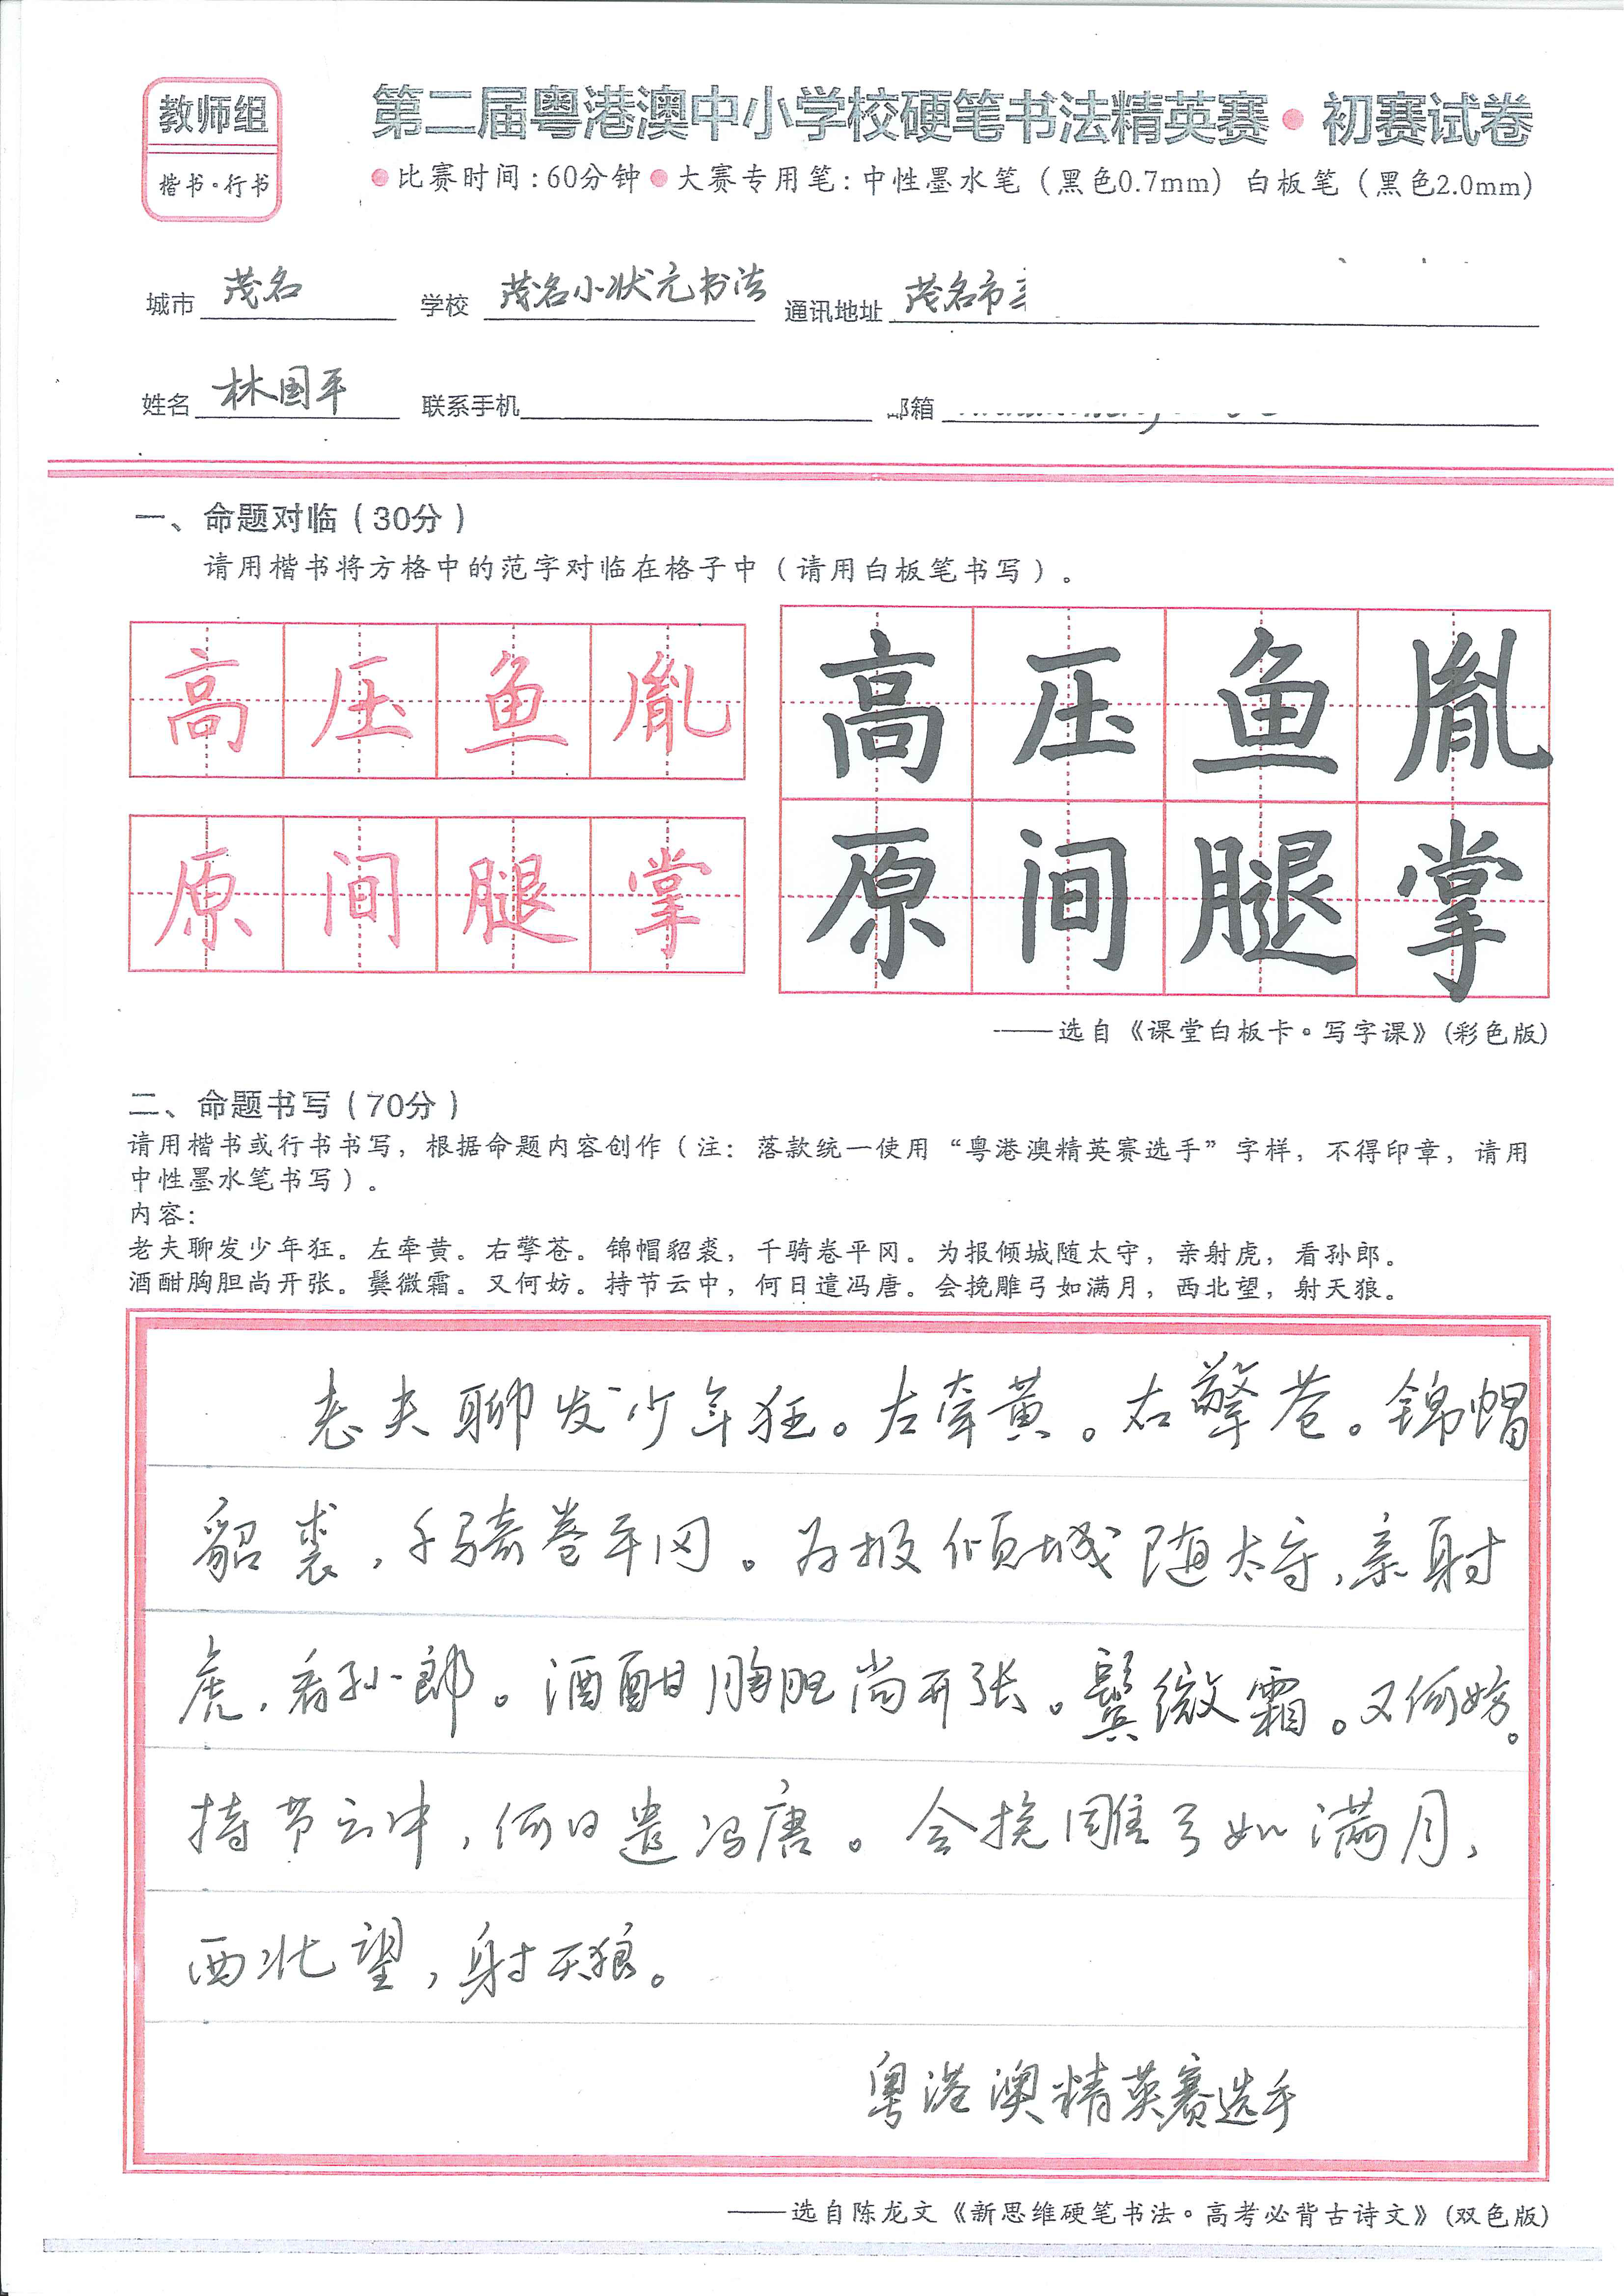 教师组
楷书·行书
第二届粤港澳中小学校硬笔书法精英赛·初赛试卷
●比赛时间:60分钟●大赛专用笔:中性墨水笔(黑色0.7mm) 白板笔(黑色2.0mm)
城市 茂名 学校 茂名小状元书法 通讯地址 茂名市
姓名 林国平 联系手机 邮箱
一、命题对临(30分)
请用楷书将方格中的范字对临在格子中(请用白板笔书写)。
高压鱼胤
原间腿掌
高压鱼胤
原间腿掌
——选自《课堂白板卡·写字课》(彩色版)
二、命题书写(70分)
请用楷书或行书书写,根据命题内容创作(注:落款统一使用“粤港澳精英赛选手”字样,不得印章,请用
中性墨水笔书写)。
内容:
老夫聊发少年狂。左牵黄。右擎苍。锦帽貂裘,千骑卷平冈。为报倾城随太守,亲射虎,看孙郎。
酒酣胸胆尚开张。鬓微霜。又何妨。持节云中,何日遣冯唐。会挽雕弓如满月,西北望,射天狼。
老夫聊发少年狂。左牵黄。右擎苍。锦帽
貂裘,千骑卷平冈。为报倾城随太守,亲射
虎,看孙郎。酒酣胸胆尚开张。鬓微霜。又何妨。
持节云中,何日遣冯唐。会挽雕弓如满月,
西北望,射天狼。
粤港澳精英赛选手
——选自陈龙文《新思维硬笔书法·高考必背古诗文》(双色版)